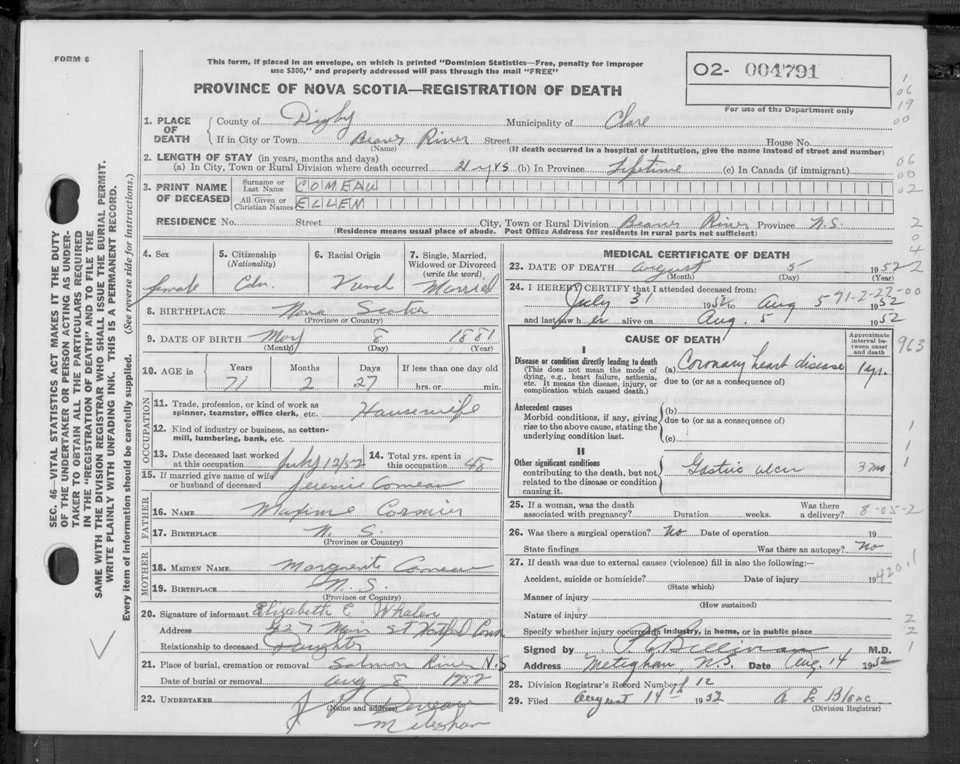 FORM 6
This form, if placed in an envelope, on which is printed "Dominion Statistics—Free, penalty for improper
use $300," and properly addressed will pass through the mail "FREE"
PROVINCE OF NOVA SCOTIA—REGISTRATION OF DEATH
O2- 004791
For use of the Department only
1. PLACE OF DEATH
County of Digby Municipality of Clare
If in City or Town Beaver River Street House No.
(Name) (If death occurred in a hospital or institution, give the name instead of street and number)
2. LENGTH OF STAY (in years, months and days)
(a) In City, Town or Rural Division where death occurred yrs (b) In Province Lifetime (c) In Canada (if immigrant)
3. PRINT NAME OF DECEASED
Surname or Last Name COMEAU
All Given or Christian Names ELLEN
RESIDENCE No. Street City, Town or Rural Division Beaver River Province N.S.
(Residence means usual place of abode. Post Office Address for residents in rural parts not sufficient)
4. Sex female
5. Citizenship (Nationality) Cdn.
6. Racial Origin French
7. Single, Married, Widowed or Divorced (write the word) Married
8. BIRTHPLACE Nova Scotia
(Province or Country)
9. DATE OF BIRTH May 8 1881
(Month) (Day) (Year)
10. AGE in Years 71 Months 2 Days 27 If less than one day old hrs. or min.
OCCUPATION
11. Trade, profession, or kind of work as spinner, teamster, office clerk, etc. Housewife
12. Kind of industry or business, as cotton-mill, lumbering, bank, etc.
13. Date deceased last worked at this occupation July 12/52
14. Total yrs. spent in this occupation 48
15. If married give name of wife or husband of deceased Jeremie Comeau
FATHER
16. NAME Maxime Cormier
17. BIRTHPLACE N.S.
(Province or Country)
MOTHER
18. MAIDEN NAME Marguerite Comeau
19. BIRTHPLACE N.S.
(Province or Country)
20. Signature of informant Elizabeth C Whalen
Address Main St Hartford Conn
Relationship to deceased Daughter
21. Place of burial, cremation or removal Salmon River N.S
Date of burial or removal Aug 8 1952
22. UNDERTAKER
(Name and address)
Meteghan
MEDICAL CERTIFICATE OF DEATH
23. DATE OF DEATH August 5 1952
(Month) (Day) (Year)
24. I HEREBY CERTIFY that I attended deceased from:
July 31 1952 to Aug 5 1952
and last saw her alive on Aug. 5 1952
71-2-27-00
CAUSE OF DEATH
Approximate interval between onset and death
I
Disease or condition directly leading to death
(This does not mean the mode of dying, e.g., heart failure, asthenia, etc. It means the disease, injury, or complication which caused death.)
(a) Coronary heart disease 1 yr.
due to (or as a consequence of)
Antecedent causes
Morbid conditions, if any, giving rise to the above cause, stating the underlying condition last.
(b)
due to (or as a consequence of)
(c)
II
Other significant conditions
contributing to the death, but not related to the disease or condition causing it.
Gastric ulcer 3 mo
25. If a woman, was the death associated with pregnancy? Duration weeks. Was there a delivery?
8-05-2
26. Was there a surgical operation? No Date of operation 19
State findings Was there an autopsy? No
27. If death was due to external causes (violence) fill in also the following:—
Accident, suicide or homicide? Date of injury 19
(State which)
420.1
Manner of injury
(How sustained)
Nature of injury
Specify whether injury occurred in industry, in home, or in public place
Signed by M.D.
Address Meteghan N.S. Date Aug 14 1952
28. Division Registrar's Record Number 12
29. Filed August 14th 1952
(Division Registrar)
963
SEC. 46—VITAL STATISTICS ACT MAKES IT THE DUTY
OF THE UNDERTAKER OR PERSON ACTING AS UNDER-
TAKER TO OBTAIN ALL THE PARTICULARS REQUIRED
IN THE "REGISTRATION OF DEATH" AND TO FILE THE
SAME WITH THE DIVISION REGISTRAR WHO SHALL ISSUE THE BURIAL PERMIT.
WRITE PLAINLY WITH UNFADING INK. THIS IS A PERMANENT RECORD.
Every item of information should be carefully supplied. (See reverse side for instructions.)